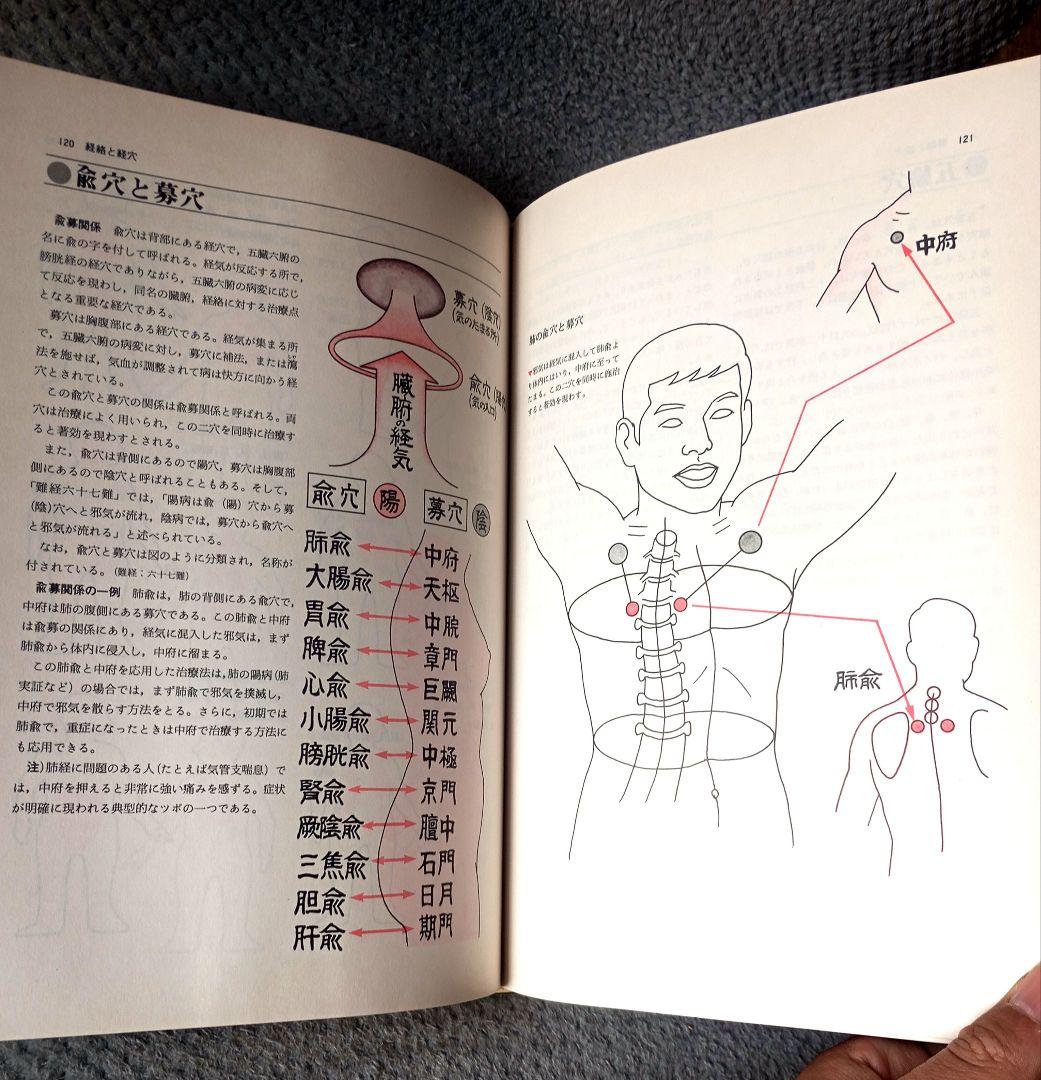 120 経絡と経穴
兪穴と募穴
兪募関係 兪穴は背部にある経穴で，五臓六腑の
名に兪の字を付して呼ばれる。経気が反応する所で，
膀胱経の経穴でありながら，五臓六腑の病変に応じ
て反応を現わし，同名の臓腑，経絡に対する治療点
となる重要な経穴である。
募穴は胸腹部にある経穴である。経気が集まる所
で，五臓六腑の病変に対し，募穴に補法，または瀉
法を施せば，気血が調整されて病は快方に向かう経
穴とされている。
この兪穴と募穴の関係は兪募関係と呼ばれる。両
穴は治療によく用いられ，この二穴を同時に治療す
ると著効を現わすとされる。
また，兪穴は背側にあるので陽穴，募穴は胸腹部
側にあるので陰穴と呼ばれることもある。そして，
「難経六十七難」では，「陽病は兪（陽）穴から募
(陰)穴へと邪気が流れ，陰病では，募穴から兪穴へ
と邪気が流れる」と述べられている。
なお，兪穴と募穴は図のように分類され，名称が
付されている。(難経：六十七難)
兪募関係の一例 肺兪は，肺の背側にある兪穴で，
中府は肺の腹側にある募穴である。この肺兪と中府
は兪募の関係にあり，経気に混入した邪気は，まず
肺兪から体内に侵入し，中府に溜まる。
この肺兪と中府を応用した治療法は，肺の陽病(肺
実証など）の場合では，まず肺兪で邪気を撲滅し，
中府で邪気を散らす方法をとる。さらに，初期では
肺兪で，重症になったときは中府で治療する方法に
も応用できる。
注）肺経に問題のある人(たとえば気管支喘息）で
は，中府を押えると非常に強い痛みを感ずる。症状
が明確に現われる典型的なツボの一つである。
募穴(陰穴)
(気のたまる所)
兪穴(陽穴
(気の入口)
臓腑の経気
兪穴 陽 募穴 陰
肺兪 中府
大腸兪 天枢
胃兪 中脘
脾兪 章門
心兪 巨闕
小腸兪 関元
膀胱兪 中極
腎兪 京門
厥陰兪 膻中
三焦兪 石門
胆兪 日月
肝兪 期門
121
中府
肺の兪穴と募穴
▼邪気は経気に混入して肺兪よ
り体内にはいり，中府に至って
たまる。この二穴を同時に施治
すると著効を現わす。
肺兪